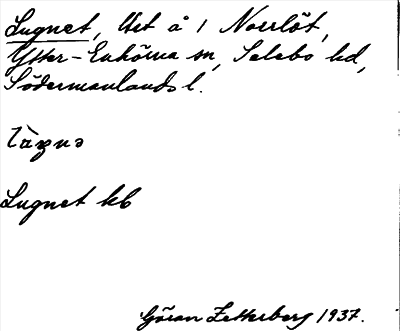 Lugnet, th​et å 1 Norrlöt,
Ytter-Enhörna sn, Selebo hd,
Södermanlands l.
Lugnet kb
Göran Zetterberg 1937.